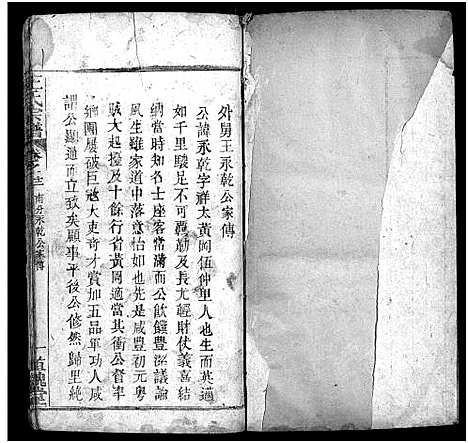 外舅王永乾公家傳
公諱永乾字祥太黃岡伍仲里人也生而英邁
如千里駿足不可羈勒及長尤輕財仗義喜結
納當時知名士座客常滿而公飲饌豐渥議論
風生雖家道中落意怡如也先是咸豐初元粵
賊大起擾及十餘行省黃岡適當其衝公督率
鄉團屢破巨寇大吏奇才賞加五品軍功人咸
謂公顯通而立致矣顧事平後公翛然歸里絶
王氏宗譜 卷之十二 南分永乾公家傳
一 植槐堂